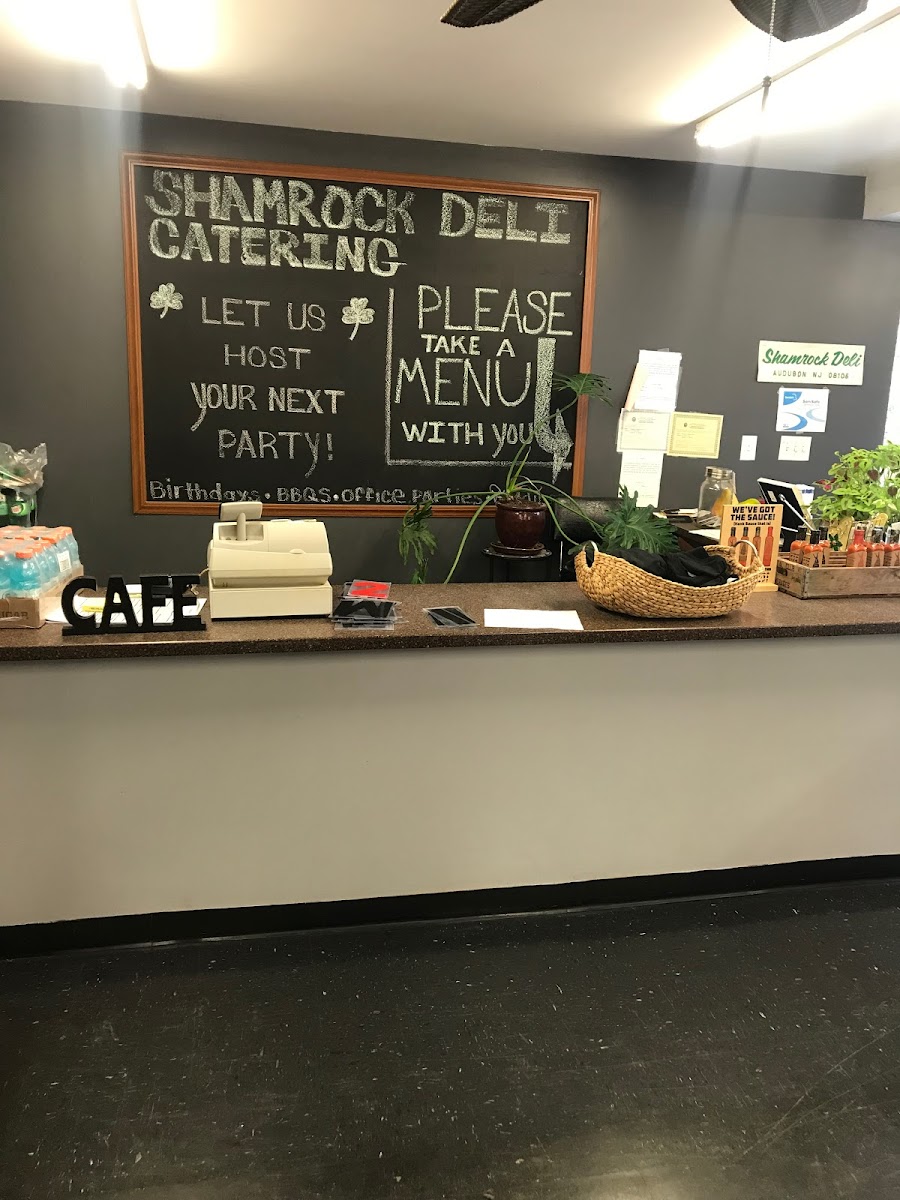 SHAMROCK DELI
CATERING
LET US
HOST
YOUR NEXT
PARTY!
PLEASE
TAKE A
MENU
WITH YOU
Birthdays • BBQS • office parties
Shamrock Deli
AUDUBON NJ 08106
WE'VE GOT
THE SAUCE!
CAFE